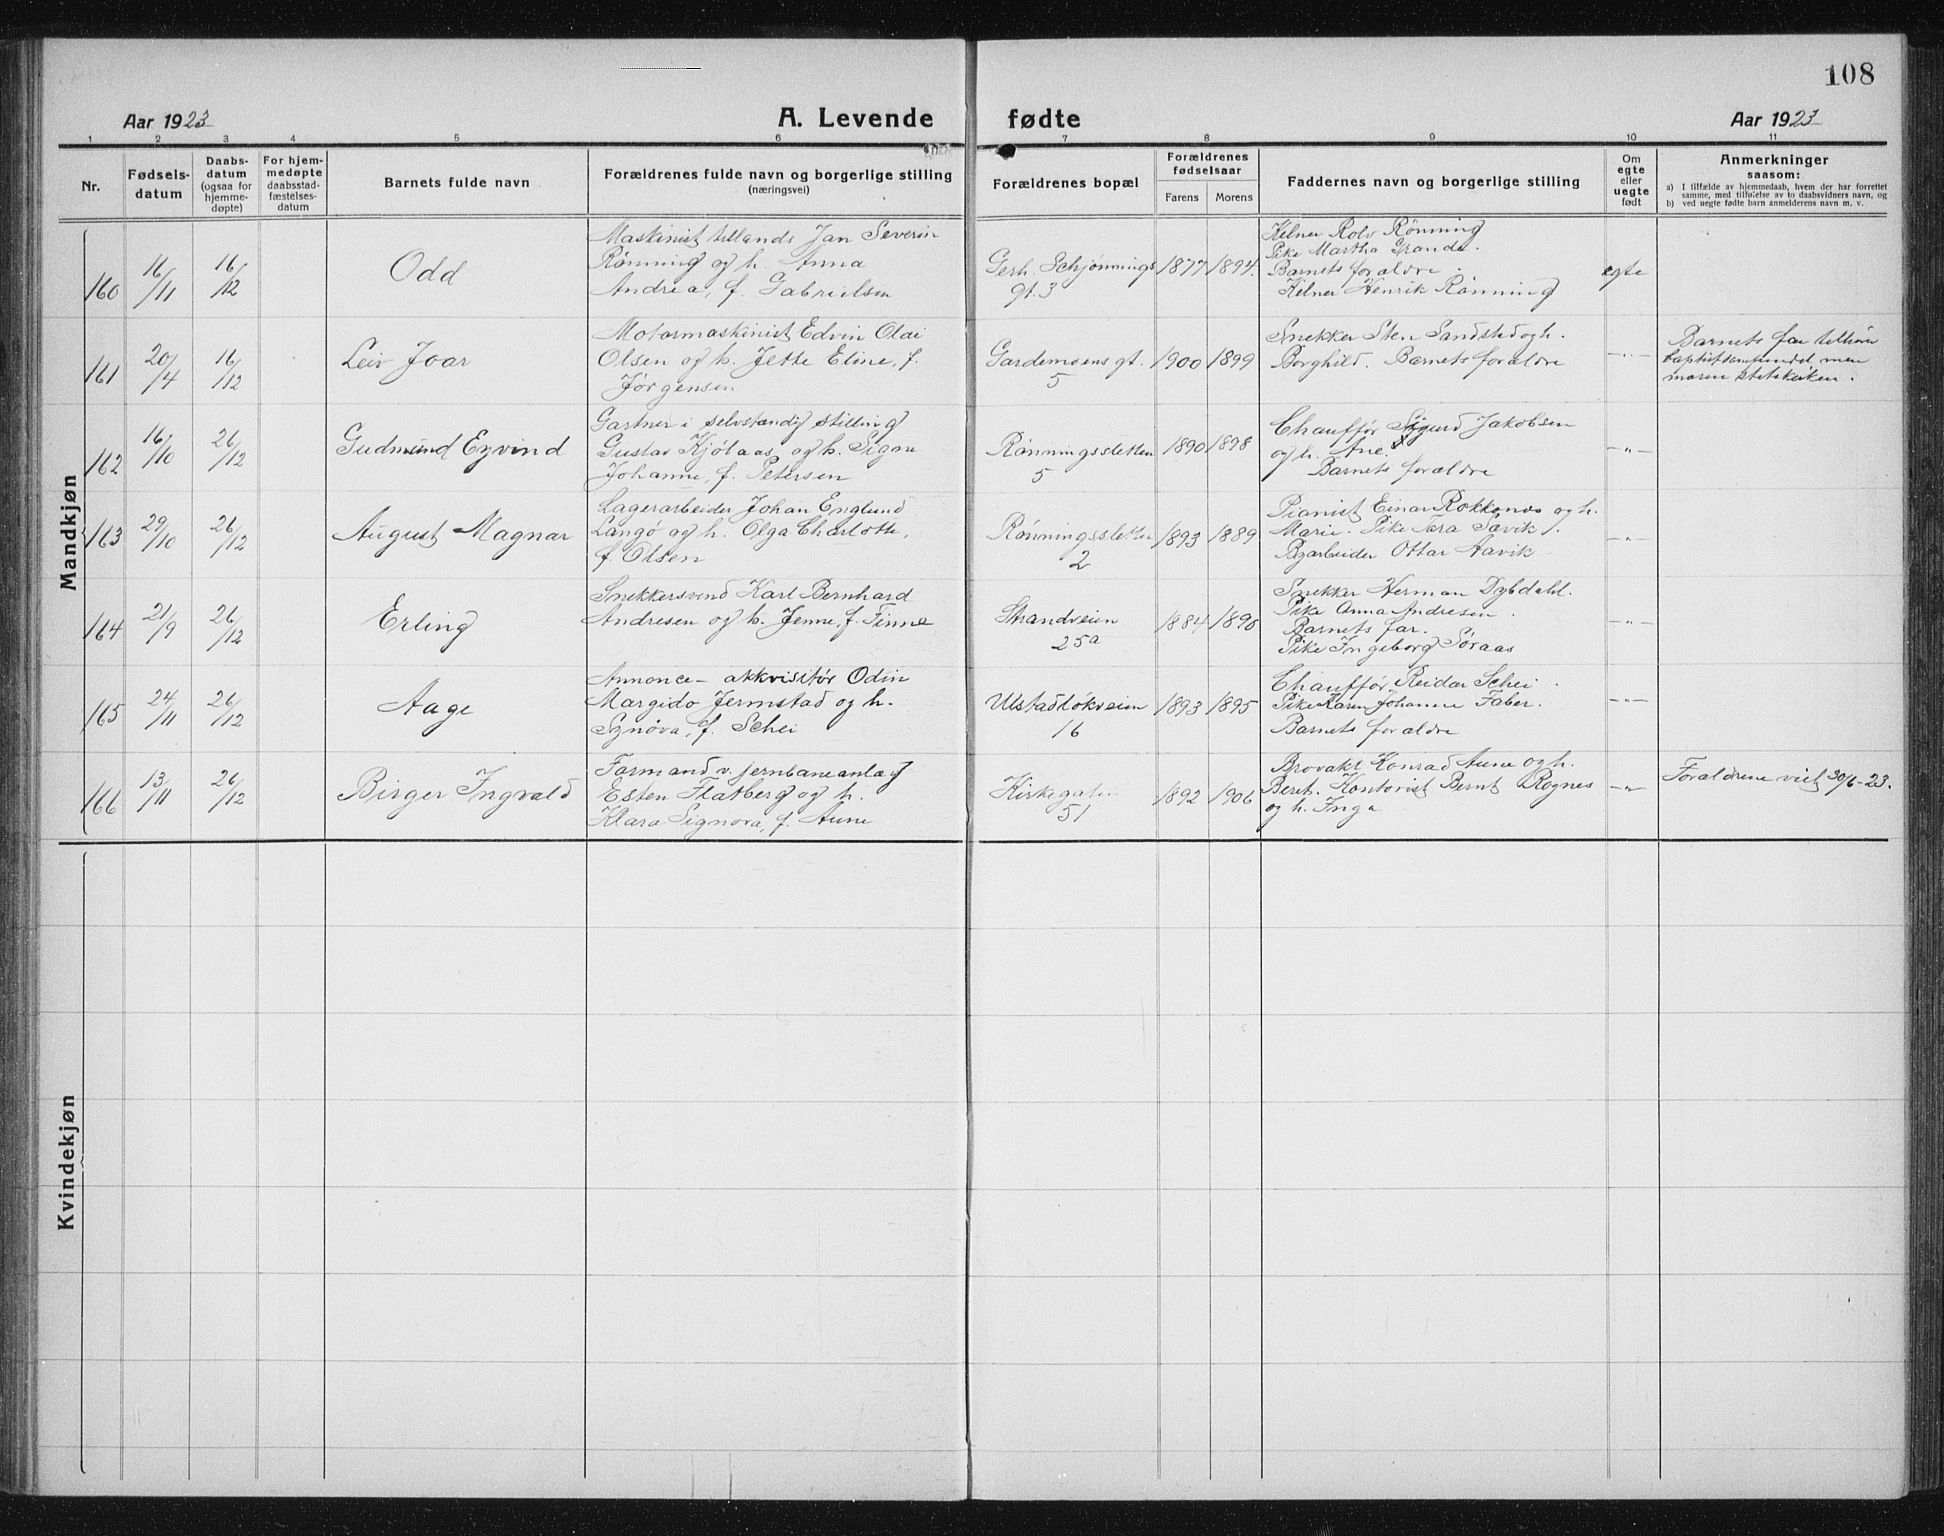 108
Aar 1923
A. Levende
fødte
Aar 1923
1 2 3 4 5 6 7 8 9 10 11
Nr.
Fødsels-
datum
Daabs-
datum
(ogsaa for
hjemme-
døpte)
For hjem-
medøpte
daabsstad-
fæstelses-
datum
Barnets fulde navn
Forældrenes fulde navn og borgerlige stilling
(næringsvei)
Forældrenes bopæl
Forældrenes
fødselsaar
Farens
Morens
Faddernes navn og borgerlige stilling
Om
egte
eller
uegte
født
Anmerkninger
saasom:
a) I tilfælde av hjemmedaab, hvem der har forrettet
samme, med tilføielse av to daabsvidners navn, og
b) ved uegte fødte barn anmelderens navn m. v.
Mandkjøn
160
16/11
16/12
Odd
Maskinist tillands Jan Severin
Rønning og h. Anna
Andrea, f. Gabrielsen
Gerh. Schjønnings
gt. 3
1877
1894.
Kelner Rolv Rønning
Pike Martha Grande.
Barnets forældre.
Kelner Henrik Rønning
egte
161
20/4
16/12
Leiv Joar
Motormaskinist Edvin Olai
Olsen og h. Jette Eline, f.
Jørgensen
Gardemoens gt.
5
1900
1899
Snekker Sten Sandsted og h.
Borghild. Barnets forældre
-"-
Barnets far tilhører
baptistsamfundet men
moren statskirken.
162
16/10
26/12
Gudmund Eyvind
Gartner i selvstændig stilling
Gustav Kjølaas og h. Signe
Johanne, f. Petersen
Rønningssletten
5
1890
1898
Chauffør Sigurd Jakobsen
og h. Ane.
Barnets forældre
-"-
163
29/10
26/12
August Magnar
Lagerarbeider Johan Englund
Langø og h. Olga Charlotte,
f. Olsen
Rønningssletten
2
1893
1889
Pianist Einar Rokkones og h.
Marie. Pike Tora Sævik
Byarbeider Ottar Aavik
-"-
164
21/9
26/12
Erling
Snekkersvend Karl Bernhard
Andresen og h. Jenne, f. Finne
Strandveien
25a
1884
1890
Snekker Herman Dybdahl.
Pike Anna Andresen.
Barnets far.
Pike Ingeborg Søraas
-"-
165
24/11
26/12
Aage
Annonce-akkvisitør Odin
Margido Jermstad og h.
Synøva, f. Schei
Ulstadløkveien
16
1893
1895
Chauffør Reidar Schei.
Pike Karen Johanne Faber.
Barnets forældre
-"-
166
13/11
26/12
Birger Ingvald
Formand v. jernbaneanlæg
Esten Flatberg og h.
Klara Signora, f. Aune
Kirkegaten
51
1892
1906
Brovakt Konrad Aune og h.
Beret. Kontorist Bernt Rognes
og h. Inga
-"-
Forældrene viet 30/6-23.
Kvindekjøn